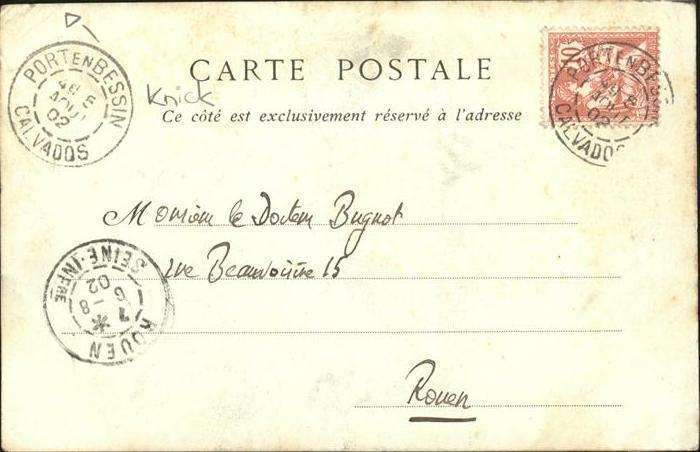 PORT EN BESSIN
AOUT
02
CALVADOS
CARTE POSTALE
Knick
Ce côté est exclusivement réservé à l'adresse
10
PORT EN BESSIN
AOUT
02
CALVADOS
Monsieur le Docteur Bugnot
rue Beauvoisine 15
ROUEN
7 * 8
6
02
SEINE-INFRE
Rouen